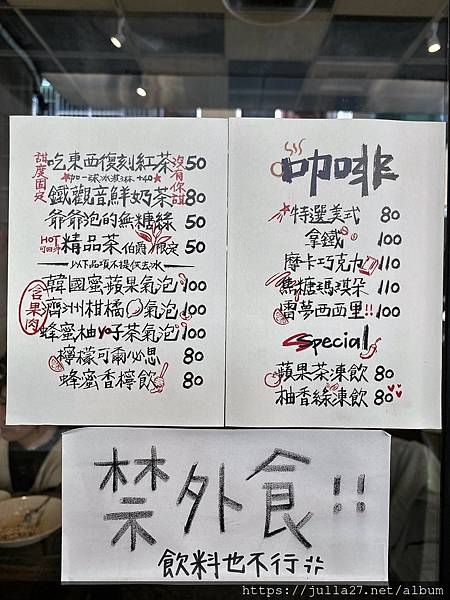 甜度固定
吃東西復刻紅茶 50
沒有保甜
★加一球冰淇淋 +40★
鐵觀音鮮奶茶 80
爺爺泡的無糖綠 50
HOT可回沖
精品茶 伯爵 限定 50
以下品項不提供去冰
含果肉
韓國蜜蘋果氣泡 100
濟州柑橘氣泡 100
蜂蜜柚yo子茶氣泡 100
檸檬可爾必思 80
蜂蜜香檸飲 80
咖啡
特選美式 80
拿鐵 100
摩卡巧克力 110
焦糖瑪琪朵 110
雷夢西西里!! 100
Special
蘋果茶凍飲 80
柚香綠凍飲 80
禁外食!!
飲料也不行
https://julla27.net/album